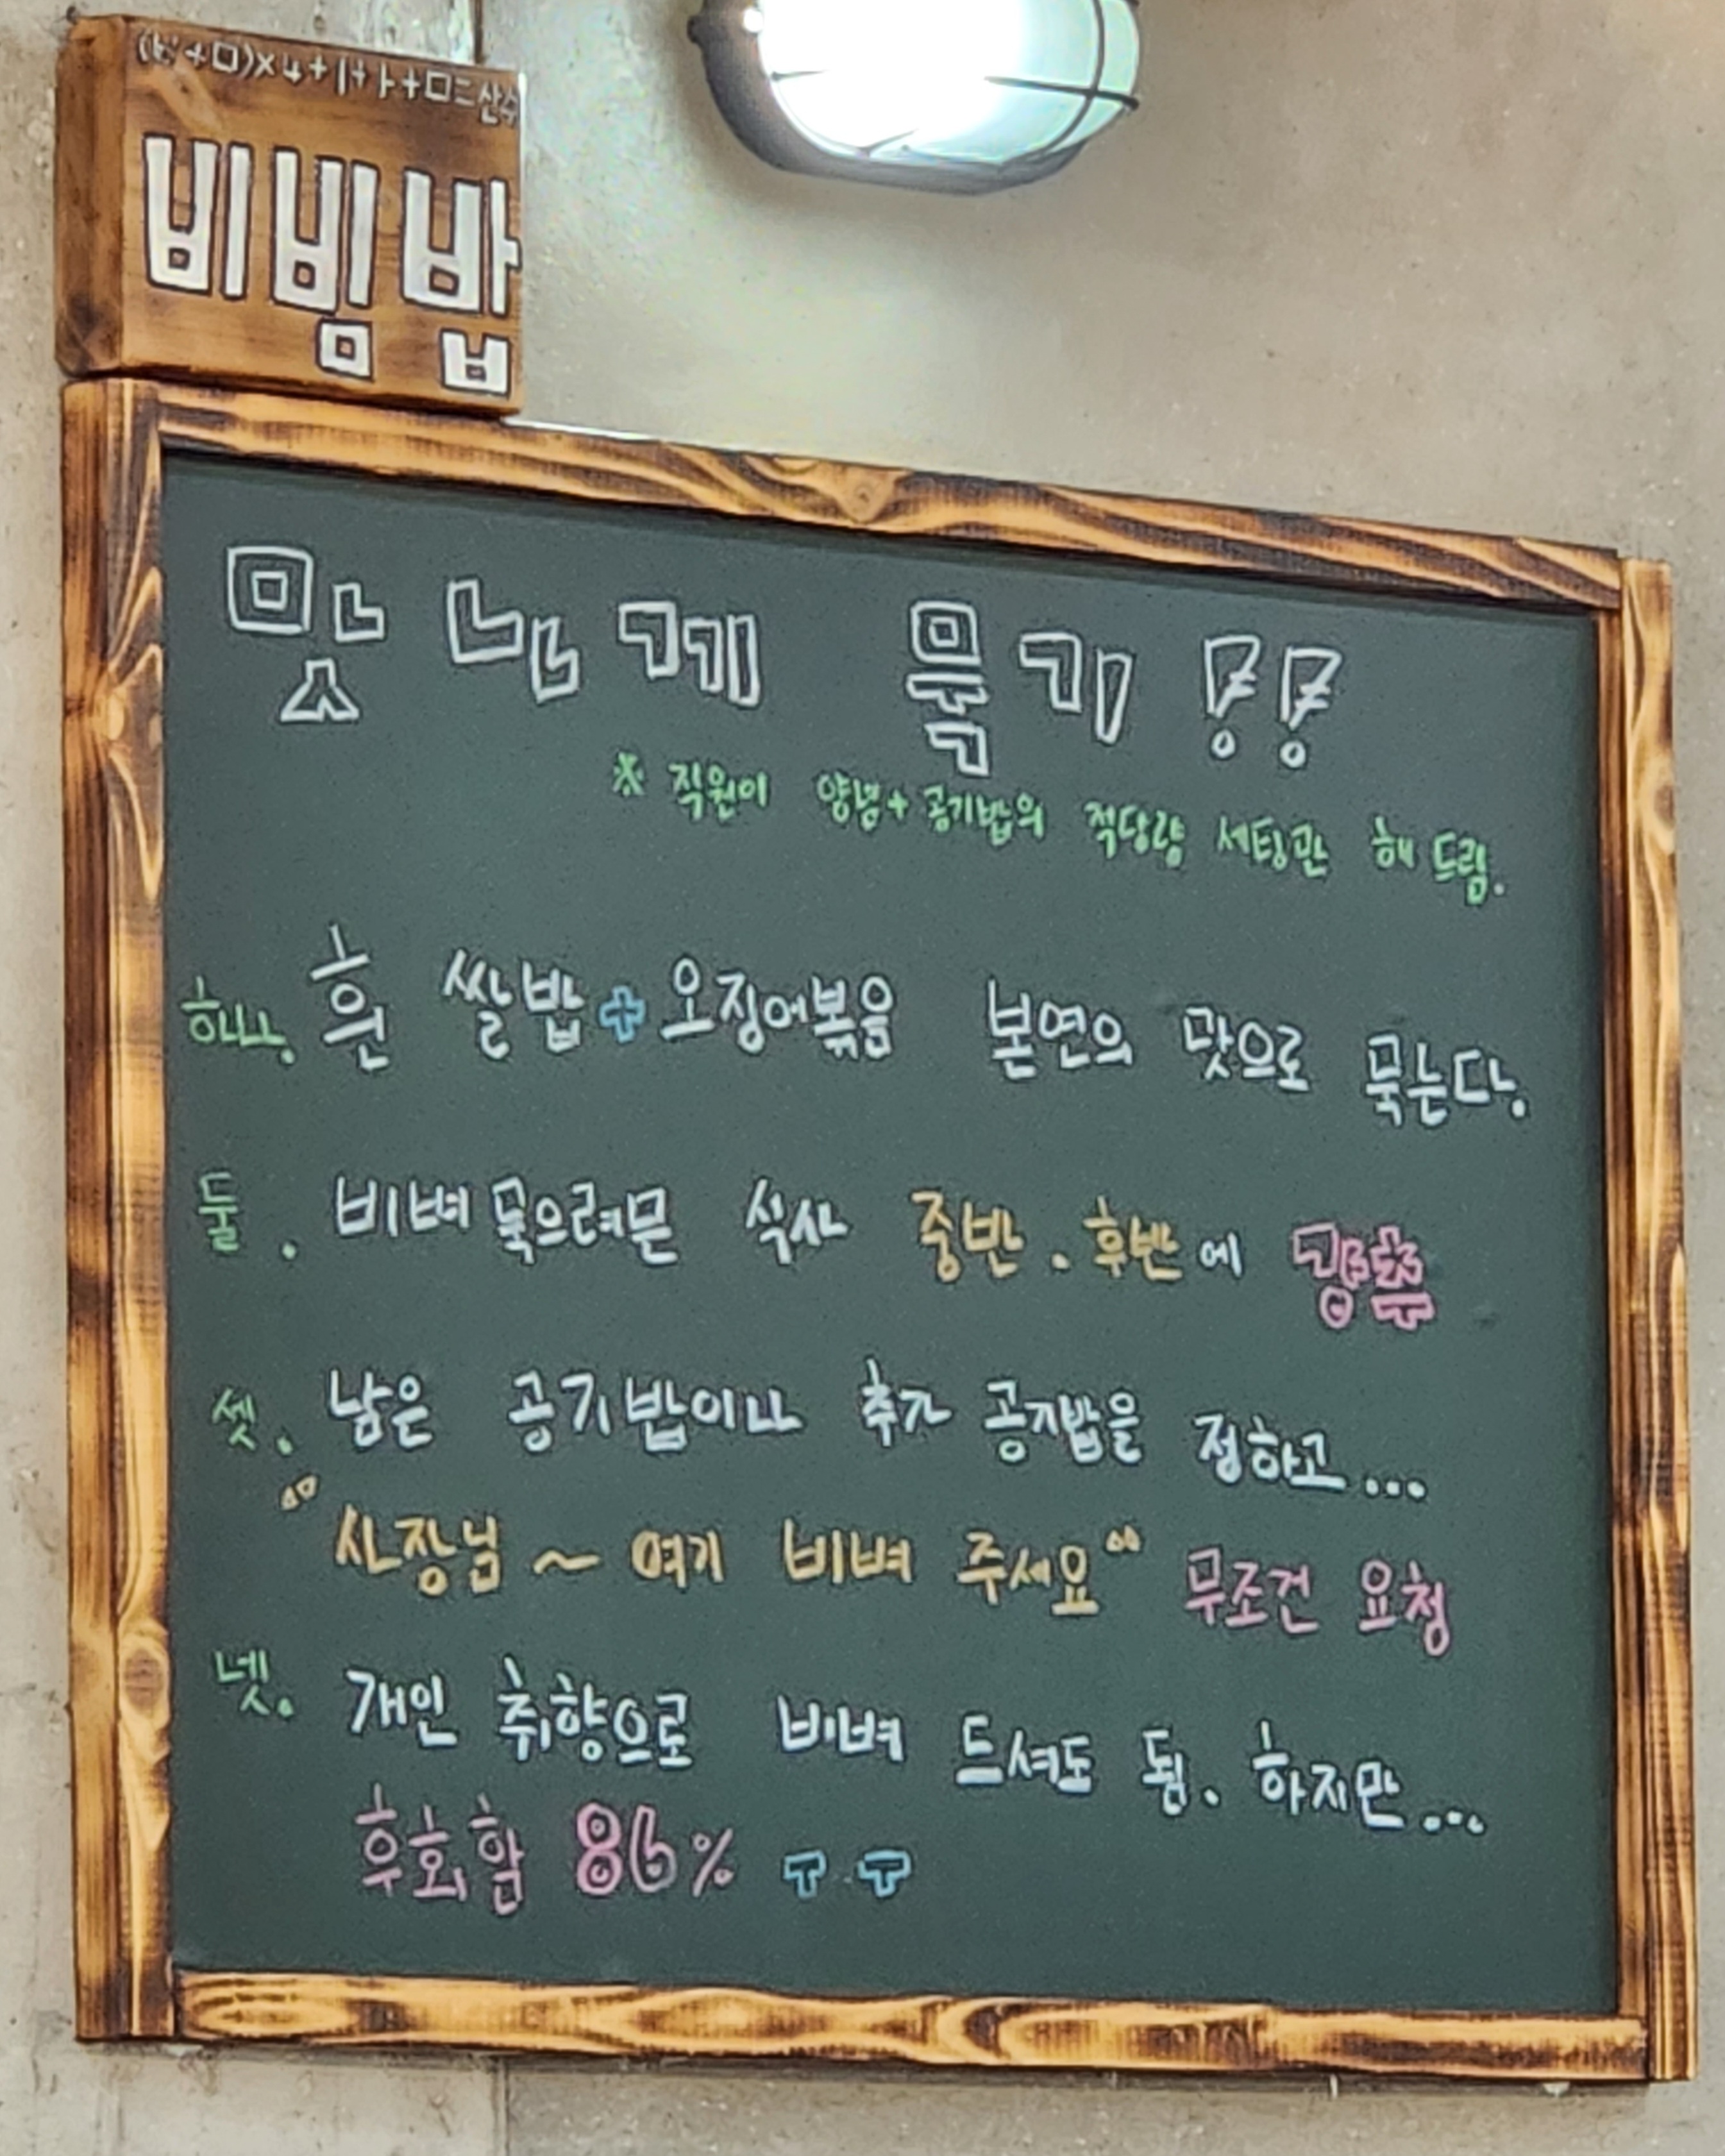 비빔밥
맛나게 묵기!!
※ 직원이 양념+공기밥의 적당량 세팅만 해 드림.
하나. 흰 쌀밥+오징어볶음 본연의 맛으로 묵는다.
둘. 비벼 묵으려믄 식사 중반.후반에 강추
셋. 남은 공기밥이나 추가 공기밥을 정하고...
"사장님~ 여기 비벼 주세요" 무조건 요청
넷. 개인 취향으로 비벼 드셔도 됨. 하지만...
후회함 86% ㅜㅜ